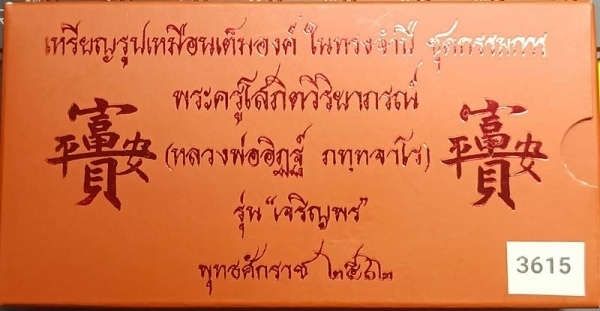 เหรียญรูปเหมือนเต็มองค์ ในทรงจำปี ชุดกรรมการ
พระครูโสภิตวิริยาภรณ์
(หลวงพ่ออิฏฐ์ ภทฺทจาโร)
รุ่น "เจริญพร"
พุทธศักราช ๒๕๖๒
平 安
平 安
3615